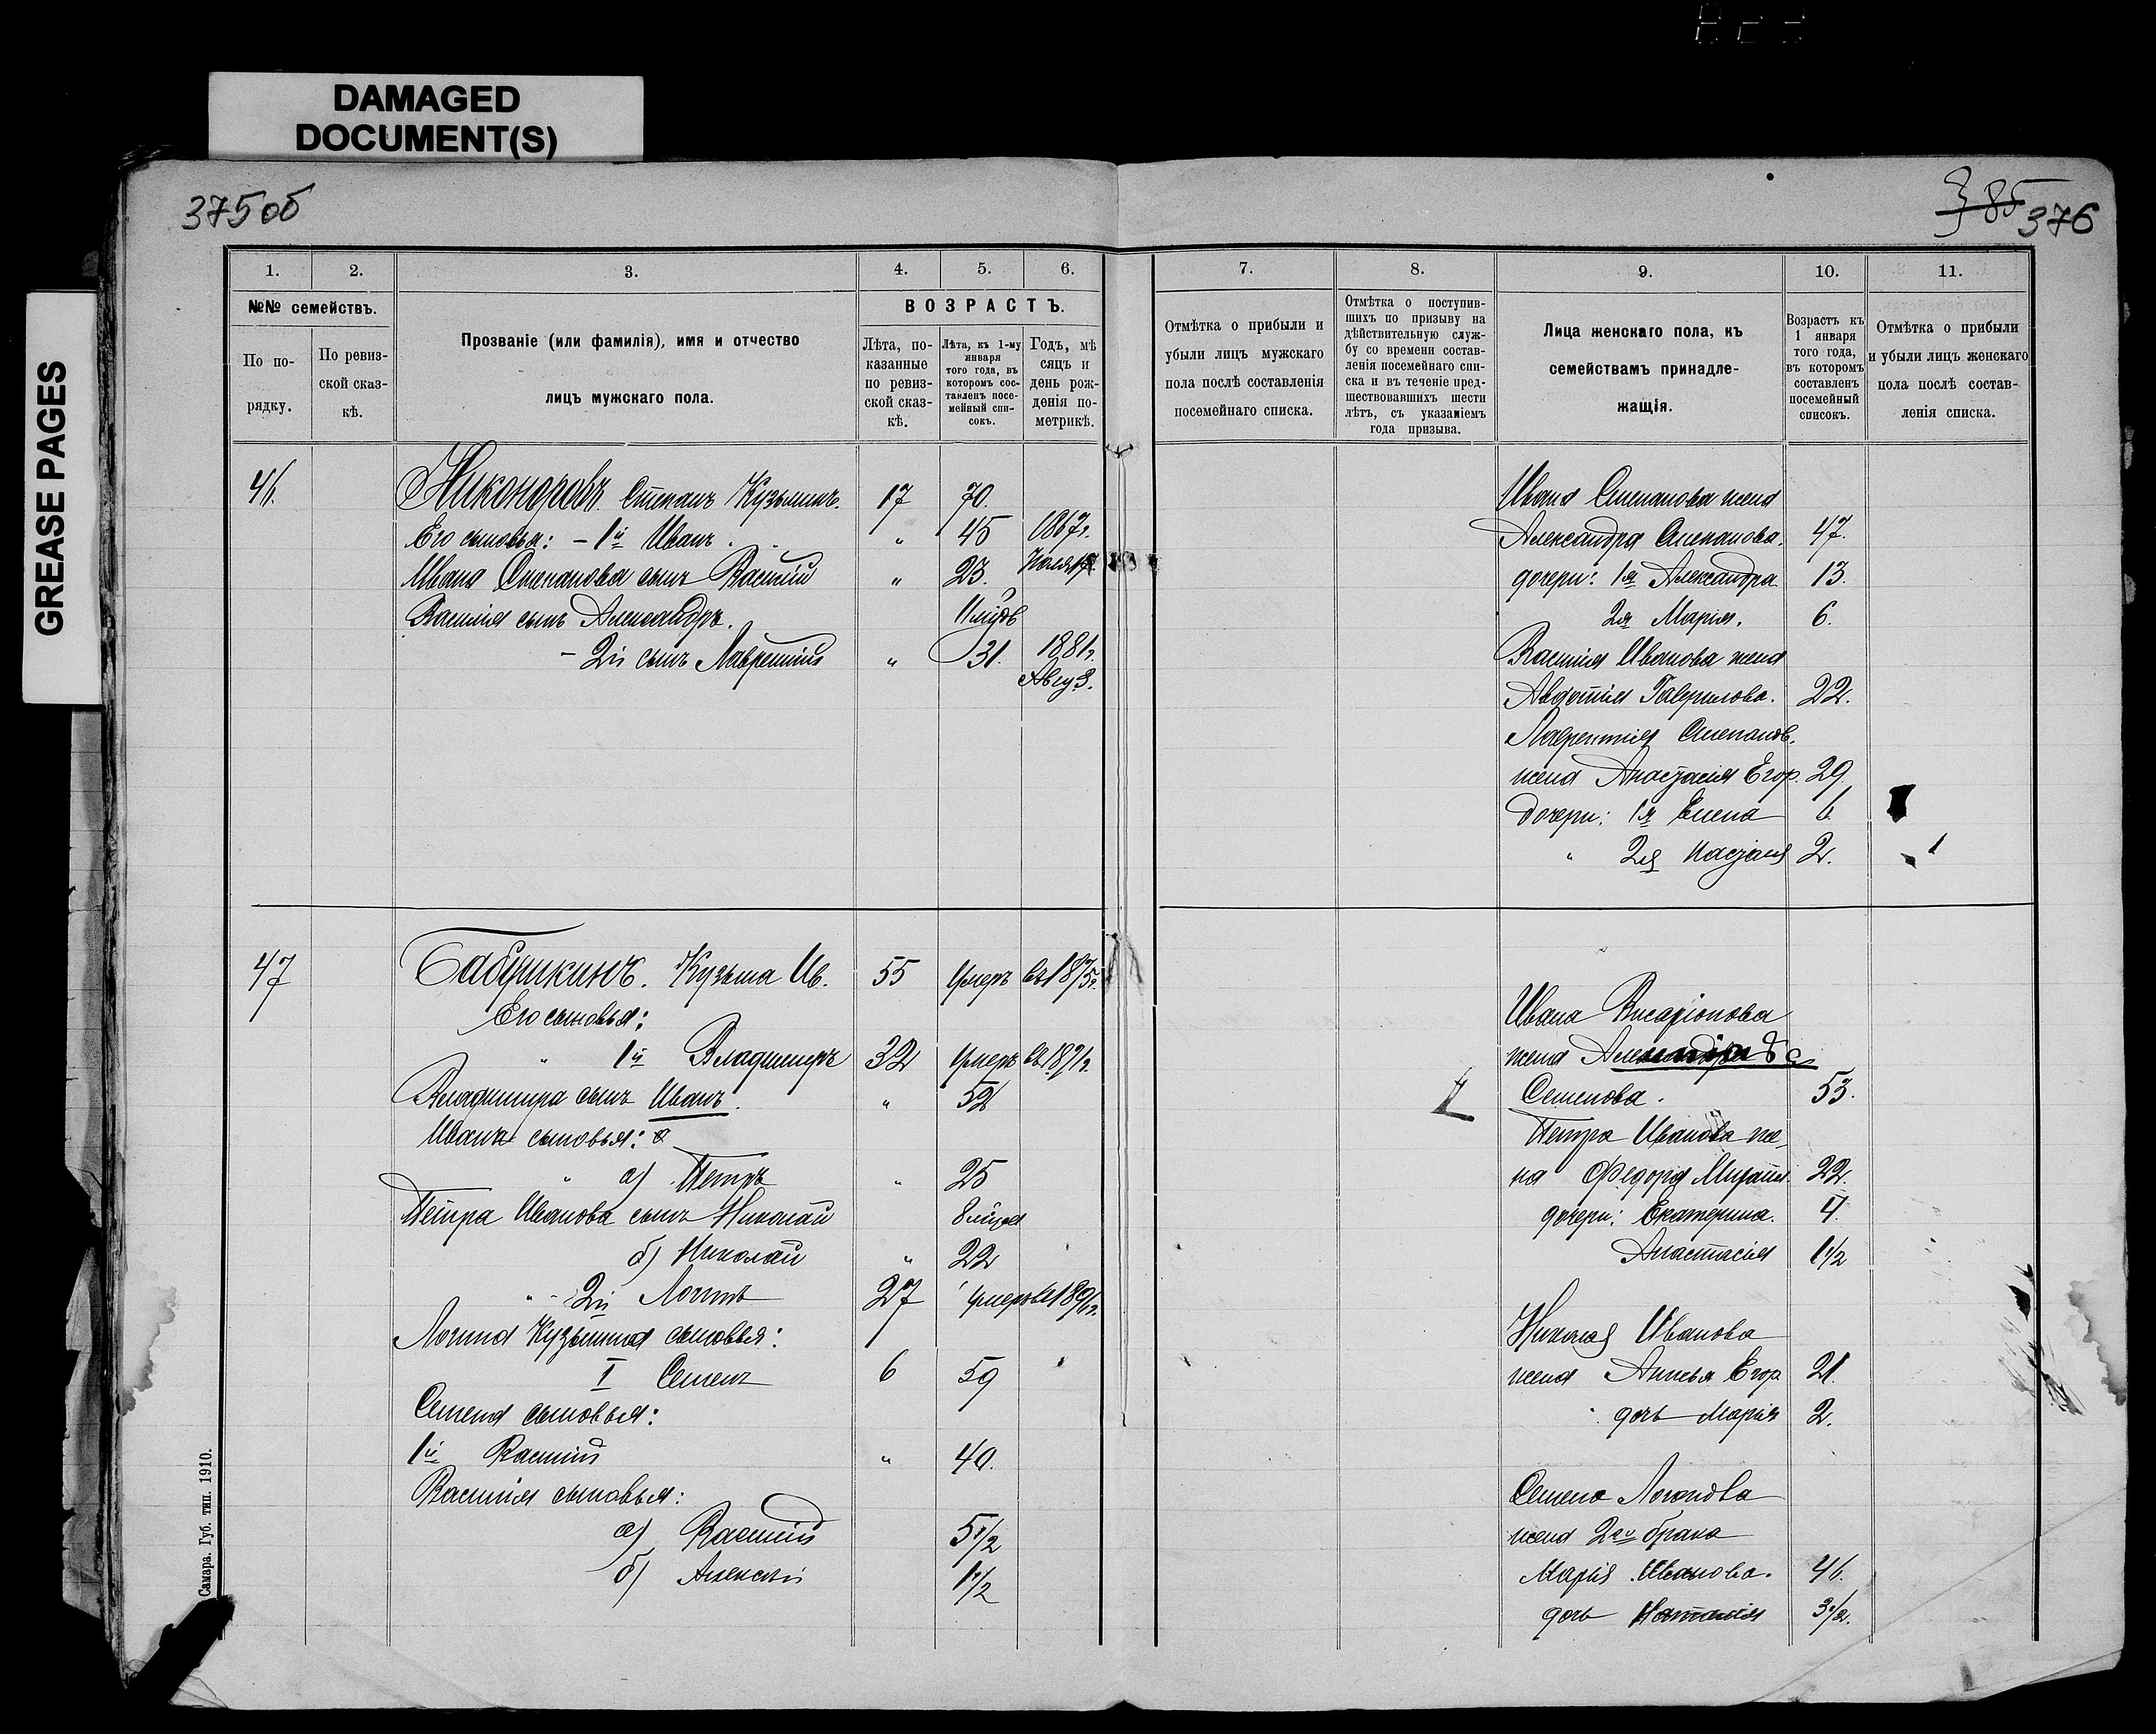 DAMAGED
DOCUMENT(S)
GREASE PAGES
375 об
385 376
1. 2. 3. 4. 5. 6.
№№ семействъ.
По по-
рядку.
По ревиз-
ской сказ-
кѣ.
Прозваніе (или фамилія), имя и отчество
лицъ мужскаго пола.
ВОЗРАСТЪ.
Лѣта, по-
казанные
по ревиз-
ской сказ-
кѣ.
Лѣта, къ 1-му
января
того года, въ
которомъ сос-
тавленъ посе-
мейный спи-
сокъ.
Годъ, мѣ
сяцъ и
день рож-
денія по-
метрикѣ.
46. Никондровъ. Степанъ Кузьминъ. 17 70.
Его сыновья: - 1й Иванъ . „ 45 1867г.
Ивана Степанова сынъ Василій „ 23.
Василія сынъ Александръ.
- 2й сынъ Лаврентій „ 31. 1881г.
Авгу 3.
47 Бабушкинъ. Кузьма Ив. 55 умеръ въ 1875г.
Его сыновья:
„ 1й Владимиръ 32 умеръ
Владимира сынъ Иванъ. „ 52
Ивана сыновья:
„ а) Петръ „ 25
Петра Иванова сынъ Николай 8 мѣсяц
б) Николай „ 22
„ - 2й Логинъ 27 умеръ
Логина Кузьмина сыновья:
I Семенъ 6 59
Семена сыновья:
1й Василій „ 40.
Василія сыновья:
а) Василій 5 1/2
б) Алексѣй 1 1/2
Самара. Губ. тип. 1910.
7. 8. 9. 10. 11.
Отмѣтка о прибыли и
убыли лицъ мужскаго
пола послѣ составленія
посемейнаго списка.
Отмѣтка о поступив-
шихъ по призыву на
дѣйствительную служ-
бу со времени состав-
ленія посемейнаго спи-
ска и въ теченіе пред-
шествовавшихъ шести
лѣтъ, съ указаніемъ
года призыва.
Лица женскаго пола, къ
семействамъ принадле-
жащія.
Возрастъ къ
1 января
того года,
въ которомъ
составленъ
посемейный
списокъ.
Отмѣтка о прибыли
и убыли лицъ женскаго
пола послѣ состав-
ленія списка.
Ивана Степанова жена
Александра Степанова. 47.
дочери: 1я Александра 13.
2я Марія. 6.
Василія Иванова жена
Авдотія Гаврилова. 22.
Лаврентія Степанов.
жена Анастасія Егор. 29.
дочери: 1я Елена 6.
„ 2я 2.
Ивана
жена
Семенова. 53.
Петра Иванова же-
на Федора 22.
дочери: Екатерина. 4.
Анастасія 1 1/2
Николая Иванова
жена Анисья Егор 21.
„ дочь Марія 2.
Семена Логинова
жена 2го брака
Марія Иванова. 46.
дочь Наталія 3 1/2.